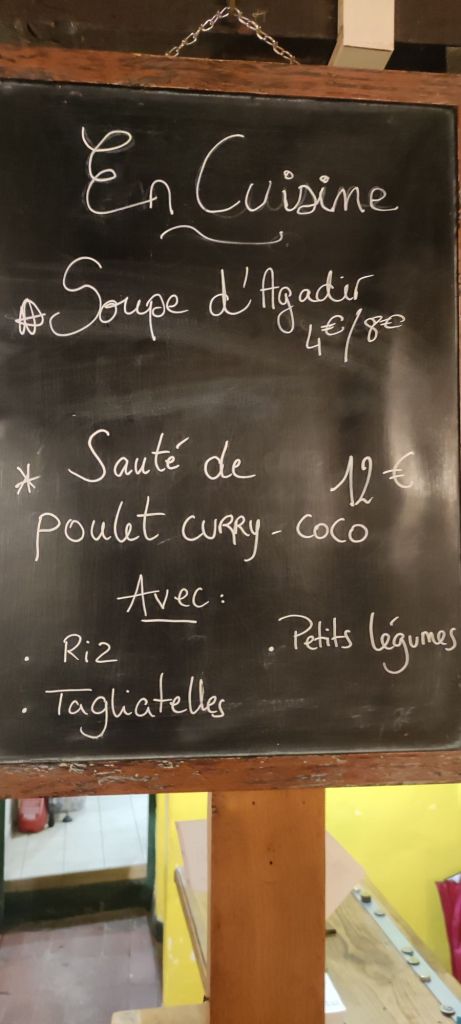 En Cuisine
* Soupe d'Agadir
4€/8€
* Sauté de 12€
poulet CURRY - COCO
Avec :
. Riz . Petits légumes
. Tagliatelles